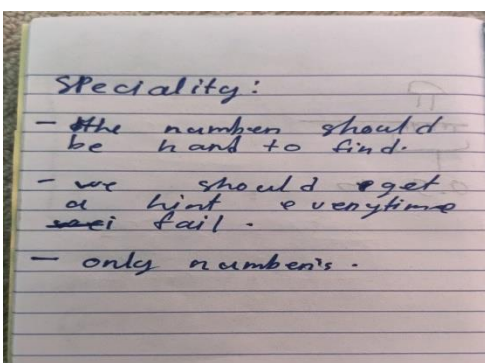 Speciality:
- the number should
be hard to find.
- we should get
a hint everytime
i fail.
- only number's.